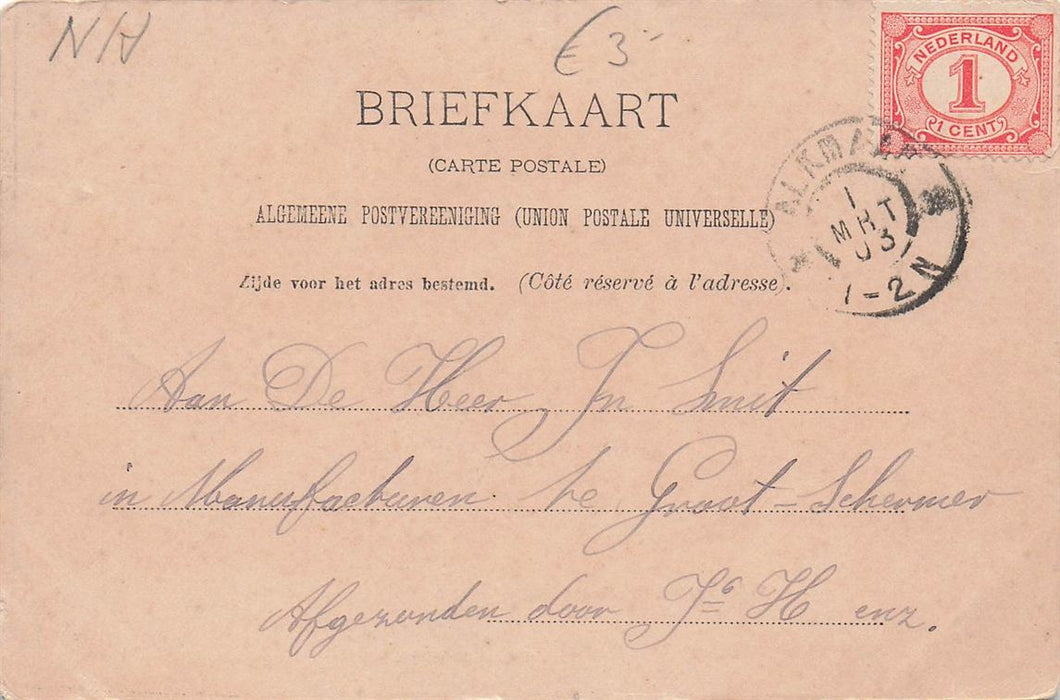 NH
€ 3-
NEDERLAND
1
1 CENT
BRIEFKAART
(CARTE POSTALE)
ALGEMEENE POSTVEREENIGING (UNION POSTALE UNIVERSELLE)
Zijde voor het adres bestemd. (Côté réservé à l'adresse).
ALKMAAR
1
MRT
03
1-2N
Aan De Heer Jn Smit
in Manufacturen te Groot-Schermer
Afgezonden door Jc H enz.